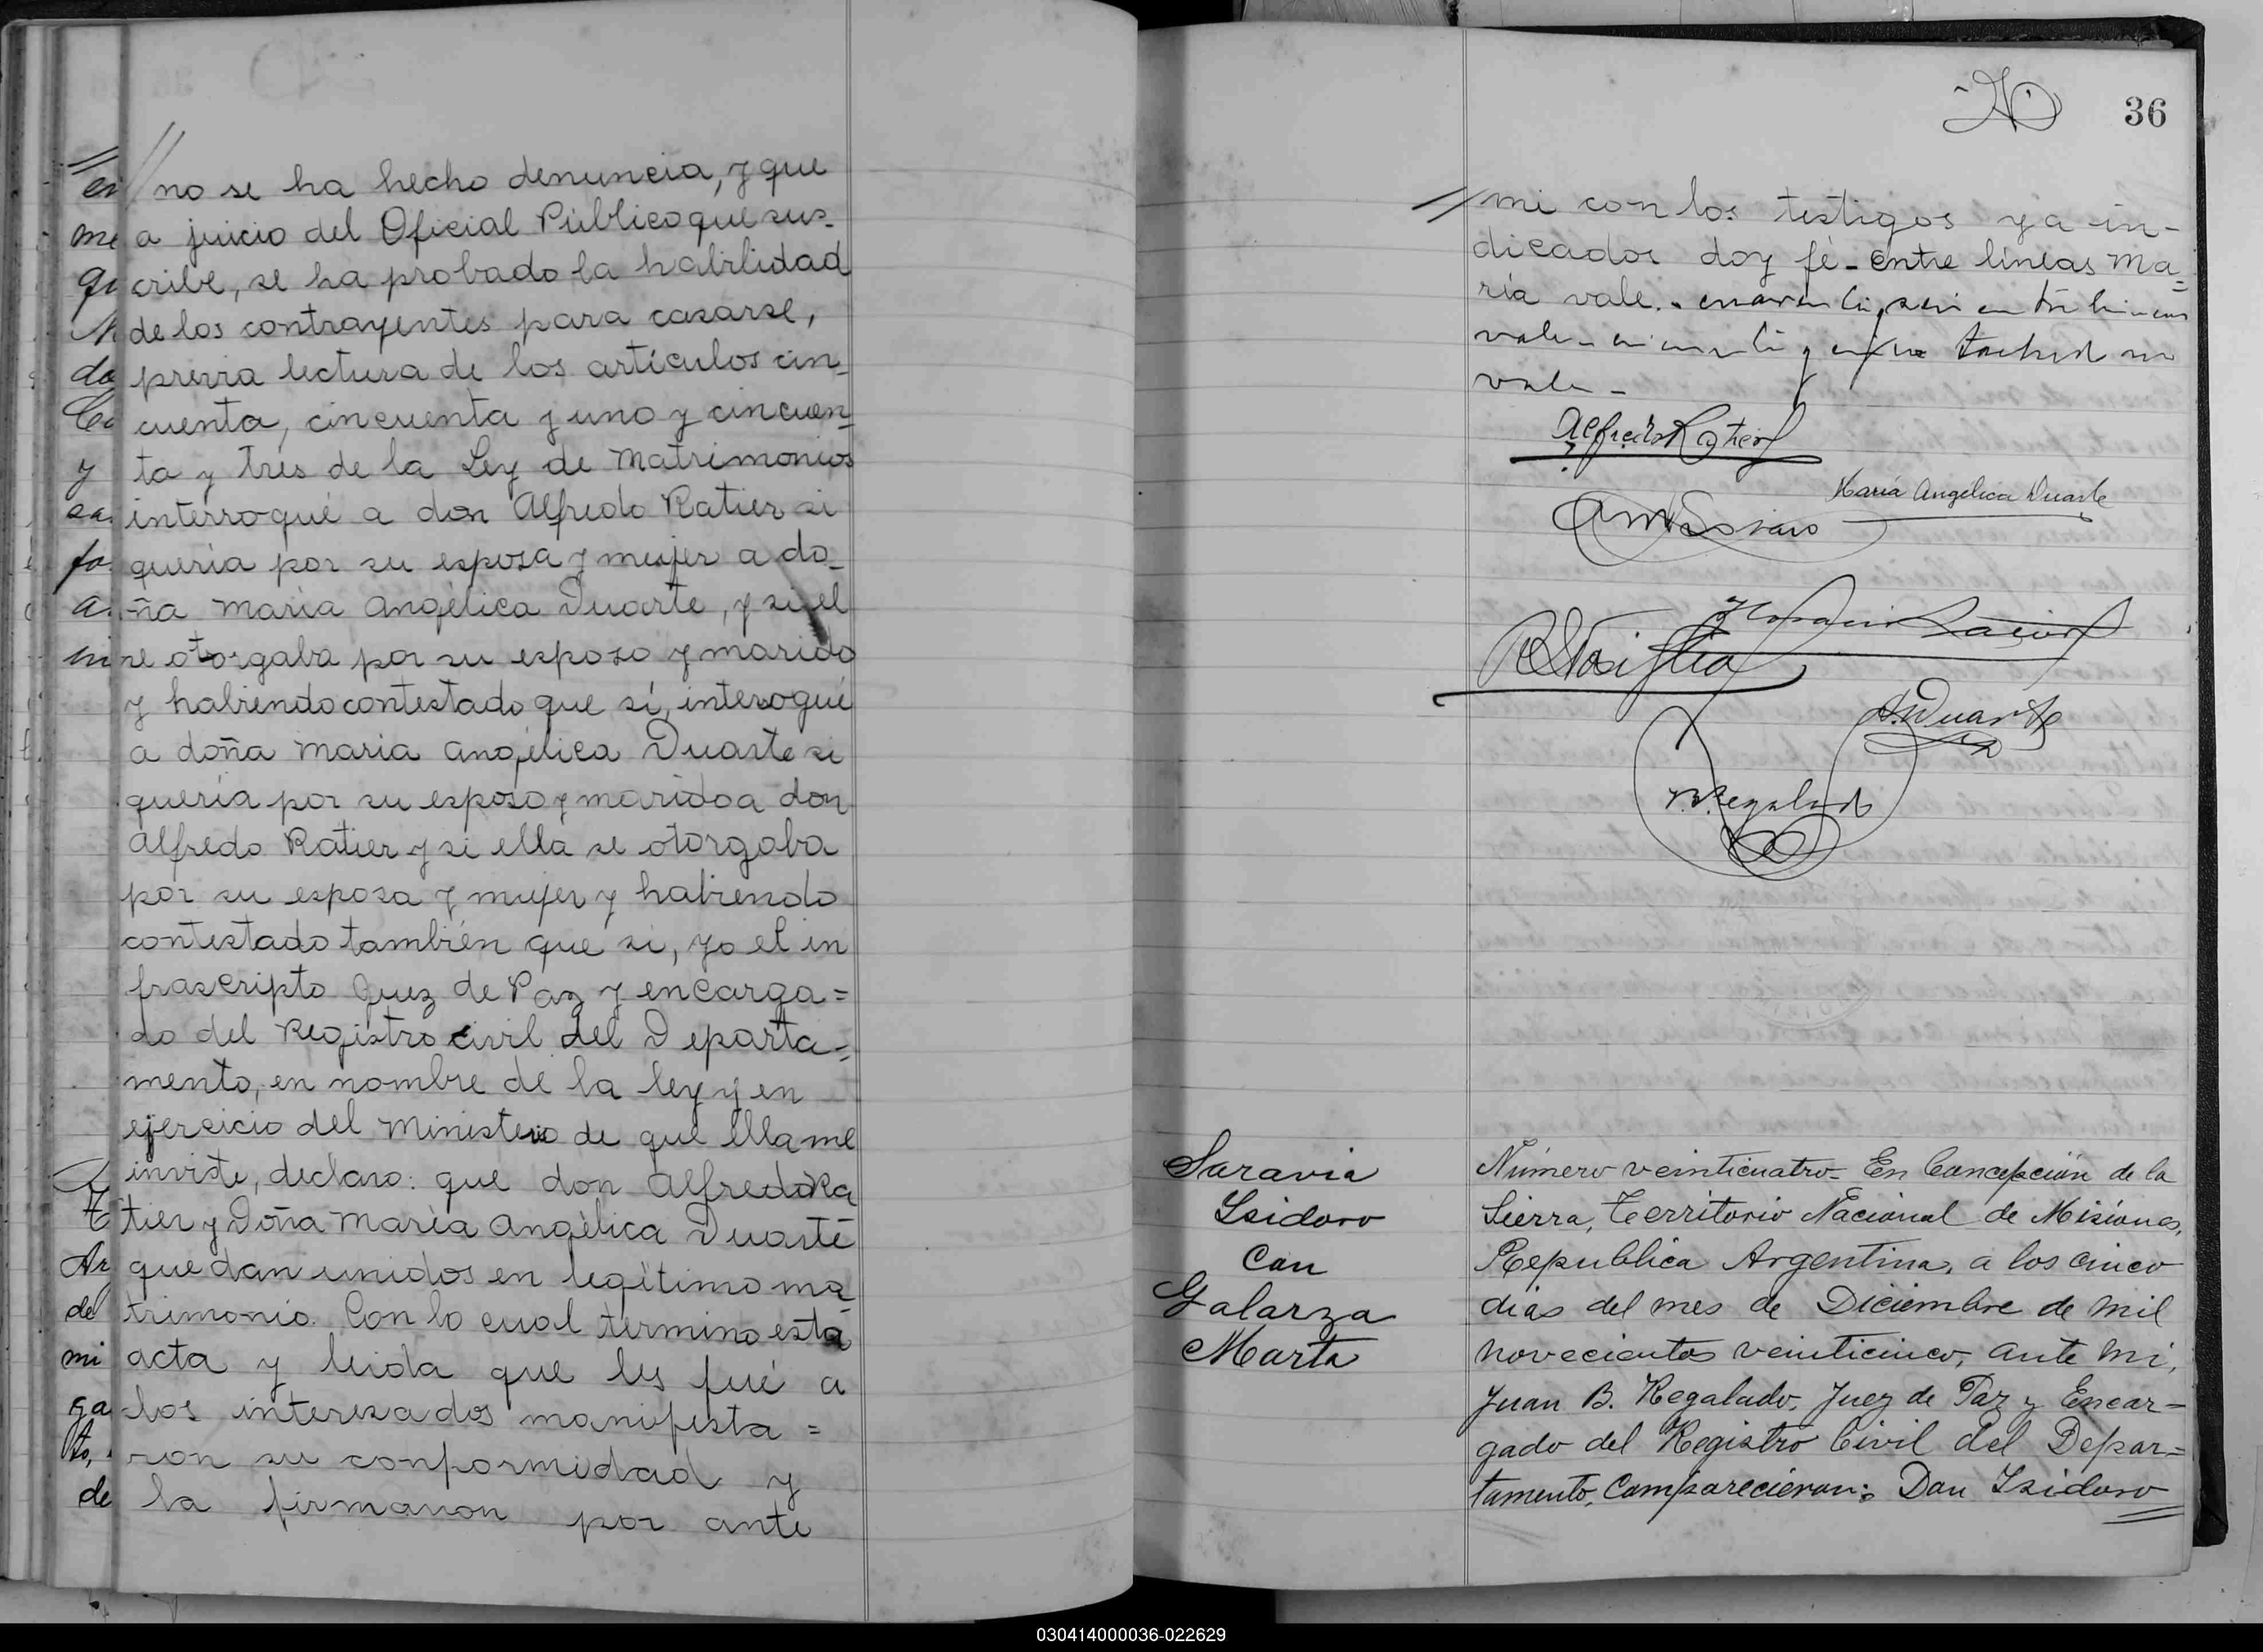 no se ha hecho denuncia, y que
a juicio del Oficial Público que sus-
cribe, se ha probado la habilidad
de los contrayentes para casarse,
previa lectura de los artículos cin-
cuenta, cincuenta y uno y cincuen-
ta y trés de la Ley de Matrimonios
interroqué a don Alfredo Ratier si
quería por su esposa y mujer a do-
ña María Angélica Duarte, y si el
se otorgaba por su esposo y marido
y habiendo contestado que sí, interogué
a doña María Angélica Duarte si
quería por su esposo y marido a don
Alfredo Ratier y si ella se otorgaba
por su esposa y mujer y habiendo
contestado también que sí, yo el in
frascripto Juez de Paz y encarga=
do del Registro civil del Departa=
mento, en nombre de la ley y en
ejercicio del Ministerio de que ella me
inviste, declaro: que don Alfredo Ra
tier y Doña María Angélica Duarte
quedan unidos en legítimo ma=
trimonio. Con lo cual termino esta
acta y leida que les fué a
los interesados manifesta=
ron su conformidad y
la firmaron por ante
36
mi con los testigos ya in-
dicados doy fé - Entre líneas Ma=
ría vale.
vale
vale -
Alfredo Ratier
María Angélica Duarte
Duarte
Regalado
Saravia
Isidoro
Con
Galarza
Marta
Número veinticuatro - En Concepción de la
Sierra, Territorio Nacional de Misiones,
Republica Argentina, a los cinco
días del mes de Diciembre de mil
novecientos veinticinco, ante mi,
Juan B. Regalado, Juez de Paz y Encar-
gado del Registro Civil del Depar=
tamento, Comparecieron: Don Isidoro
030414000036-022629